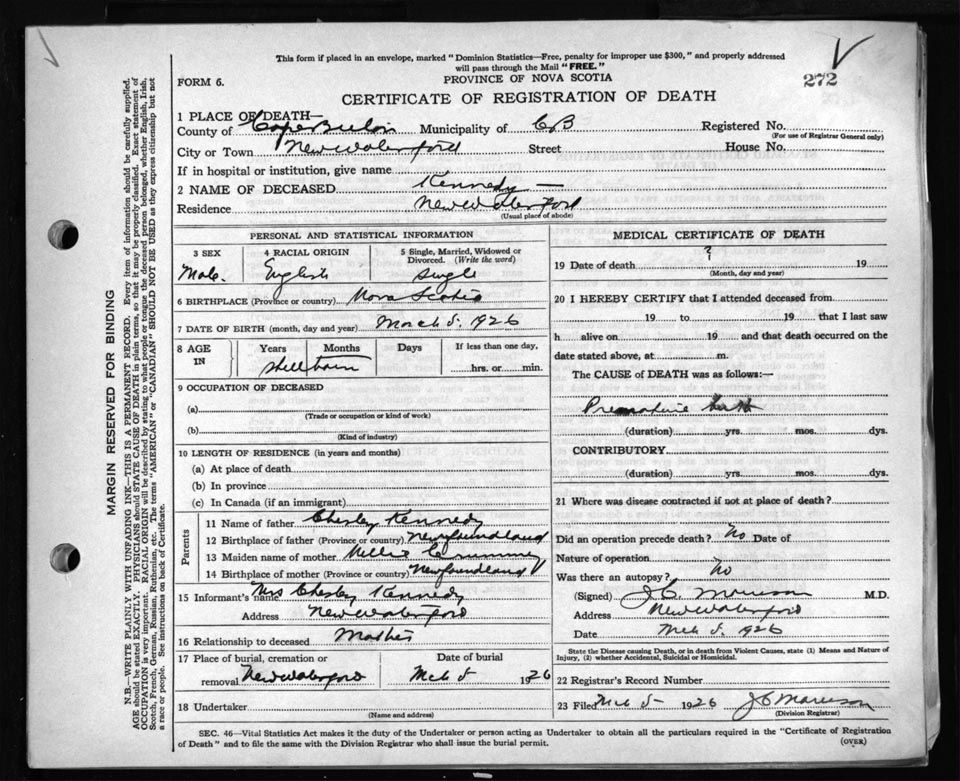 This form if placed in an envelope, marked "Dominion Statistics—Free, penalty for improper use $300," and properly addressed
will pass through the Mail "FREE."
272
FORM 6.
PROVINCE OF NOVA SCOTIA
CERTIFICATE OF REGISTRATION OF DEATH
1 PLACE OF DEATH—
County of Cape Breton Municipality of CB Registered No.
(For use of Registrar General only)
City or Town New Waterford Street House No.
If in hospital or institution, give name
2 NAME OF DECEASED Kennedy —
Residence New Waterford
(Usual place of abode)
PERSONAL AND STATISTICAL INFORMATION
3 SEX 4 RACIAL ORIGIN 5 Single, Married, Widowed or
Divorced. (Write the word)
Male English Single
6 BIRTHPLACE (Province or country) Nova Scotia
7 DATE OF BIRTH (month, day and year) March 5. 1926
8 AGE IN Years Months Days If less than one day,
hrs. or min.
Stillborn
9 OCCUPATION OF DECEASED
(a)
(Trade or occupation or kind of work)
(b)
(Kind of industry)
10 LENGTH OF RESIDENCE (in years and months)
(a) At place of death
(b) In province
(c) In Canada (if an immigrant)
Parents
11 Name of father Chesley Kennedy
12 Birthplace of father (Province or country) Newfoundland
13 Maiden name of mother Nellie
14 Birthplace of mother (Province or country) Newfoundland
15 Informant's name Mrs Chesley Kennedy
Address New Waterford
16 Relationship to deceased Mother
17 Place of burial, cremation or Date of burial
removal New Waterford Mch 5 1926
18 Undertaker
(Name and address)
MEDICAL CERTIFICATE OF DEATH
19 Date of death ? 19
(Month, day and year)
20 I HEREBY CERTIFY that I attended deceased from
19 to 19 that I last saw
h alive on 19 and that death occurred on the
date stated above, at m.
The CAUSE of DEATH was as follows:—
Premature birth
(duration) yrs. mos. dys.
CONTRIBUTORY
(duration) yrs. mos. dys.
21 Where was disease contracted if not at place of death?
Did an operation precede death? No Date of
Nature of operation
Was there an autopsy? No
(Signed) M.D.
Address New Waterford
Date Mch 5. 1926
State the Disease causing Death, or in death from Violent Causes, state (1) Means and Nature of
Injury, (2) whether Accidental, Suicidal or Homicidal.
22 Registrar's Record Number
23 Filed Mch 5 1926
(Division Registrar)
SEC. 46—Vital Statistics Act makes it the duty of the Undertaker or person acting as Undertaker to obtain all the particulars required in the "Certificate of Registration
of Death" and to file the same with the Division Registrar who shall issue the burial permit.
(OVER)
MARGIN RESERVED FOR BINDING
N.B.—WRITE PLAINLY WITH UNFADING INK—THIS IS A PERMANENT RECORD. Every item of information should be carefully supplied.
AGE should be stated EXACTLY. PHYSICIANS should STATE CAUSE OF DEATH in plain terms, so that it may be properly classified. Exact statement of
OCCUPATION is very important. RACIAL ORIGIN will be described by stating to what people or tongue the deceased person belonged, whether English, Irish,
Scotch, French, German, Russian, Ruthenian, etc. The terms "AMERICAN" or "CANADIAN" SHOULD NOT BE USED as they express citizenship but not
a race or people. See instructions on back of Certificate.